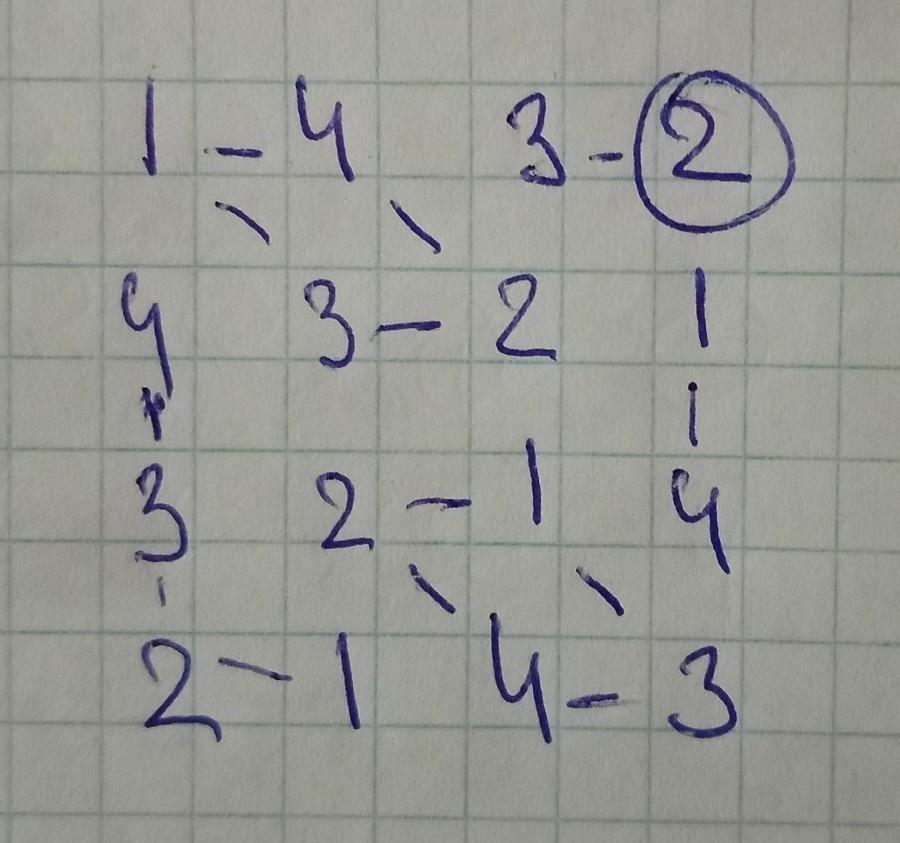 1 - 4 3 - 2
4 3 - 2 1
3 2 - 1 4
2 - 1 4 - 3